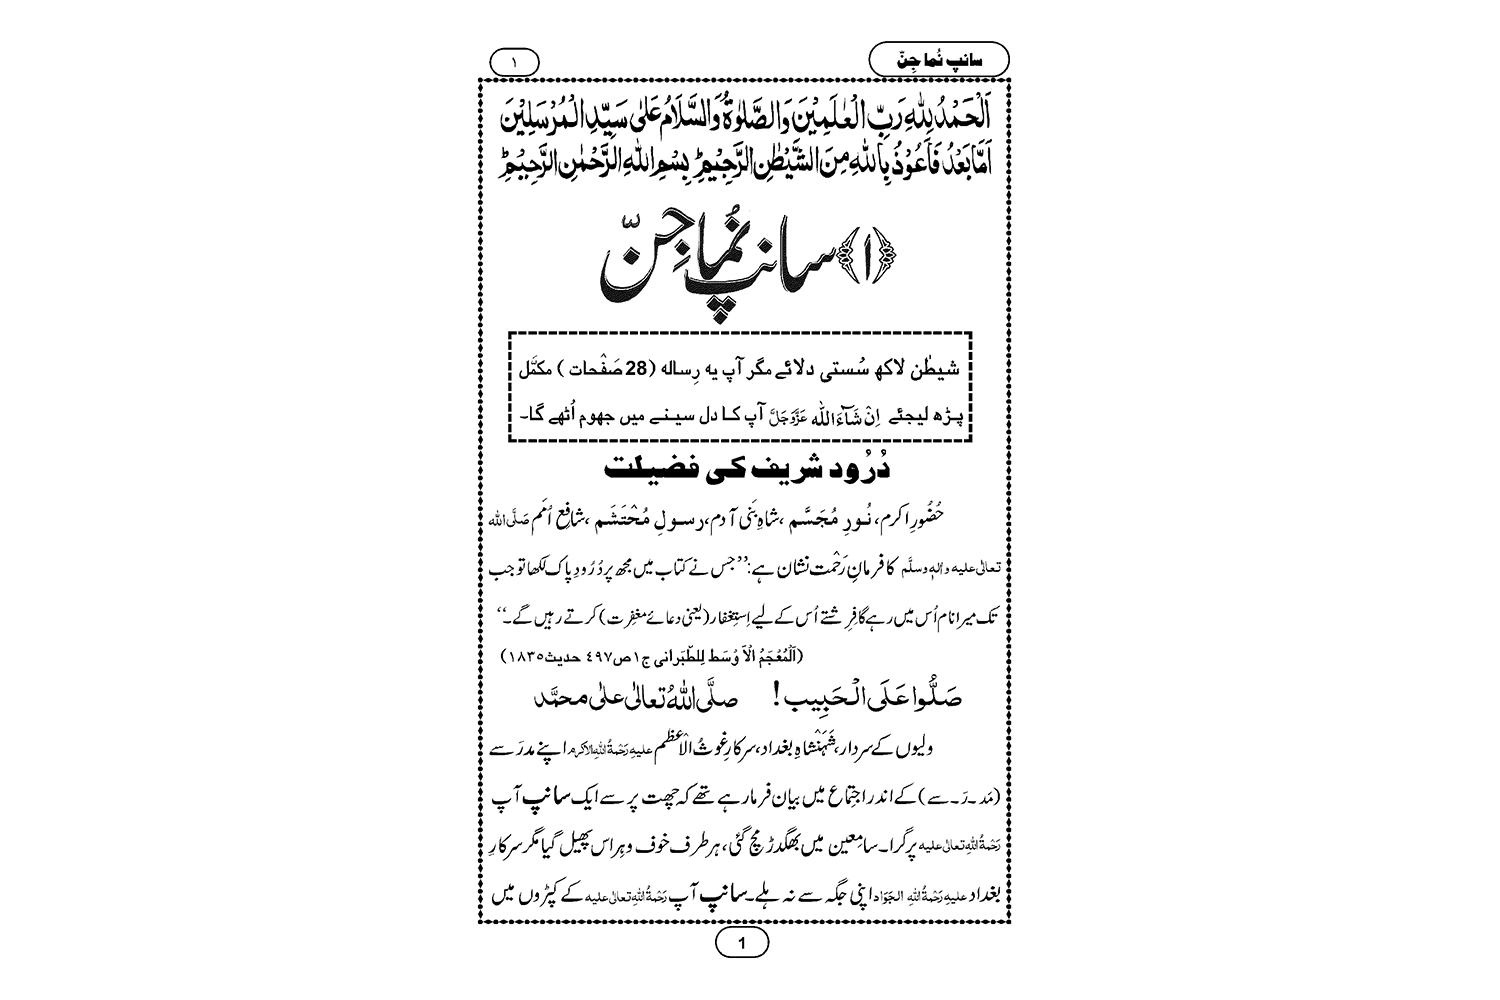 سانپ نُما جِنّ
۱
اَلْحَمْدُ لِلّٰهِ رَبِّ الْعٰلَمِيْنَ وَالصَّلٰوةُ وَالسَّلَامُ عَلٰی سَيِّدِ الْمُرْسَلِيْنَ
اَمَّا بَعْدُ فَاَعُوْذُ بِاللّٰهِ مِنَ الشَّيْطٰنِ الرَّجِيْمِ ؕ بِسْمِ اللّٰهِ الرَّحْمٰنِ الرَّحِيْمِ ؕ
﴿۱﴾ سانپ نُما جِنّ
شیطٰن لاکھ سُستی دلائے مگر آپ یہ رِسالہ (28 صَفْحات ) مکمَّل
پڑھ لیجئے اِنْ شَآءَ اللّٰه عَزَّوَجَلَّ آپ کا دل سینے میں جھوم اُٹھے گا۔
دُرُود شریف کی فضیلت
حُضُورِ اکرم، نُورِ مُجَسَّم ،شاہِ بَنی آدم، رسولِ مُحْتَشَم ،شافِعِ اُمَم صَلَّی اللّٰہ
تعالٰی علیہ واٰلہٖ وسلَّم کا فرمانِ رَحْمت نشان ہے:’’جس نے کتاب میں مجھ پر دُرُودِ پاک لکھا تو جب
تک میرا نام اُس میں رہے گا فِرِشتے اُس کے لیے اِستِغفار (یعنی دعائے مغفِرت) کرتے رہیں گے۔‘‘
(اَلْمُعْجَمُ الْاَ وْسَط لِلطَّبَرانی ج۱ ص۴۹۷ حدیث۱۸۳۵)
صَلُّوا عَلَی الْحَبِیب! صلَّی اللّٰهُ تعالٰی علٰی محمَّد
ولیوں کے سردار،شَہَنْشاہِ بغداد،سرکارِ غوثُ الْاَعظم علیہ رَحْمۃُ اللّٰہِ الاکرم اپنے مدرَسے
(مَد۔رَ۔سے) کے اندر اجتماع میں بیان فرمارہے تھے کہ چھت پر سے ایک سانپ آپ
رَحْمۃُ اللّٰہِ تعالٰی علیہ پر گرا۔ سامِعین میں بھگدڑ مچ گئی ، ہر طرف خوف و ہِراس پھیل گیا مگر سرکارِ
بغداد علیہ رَحْمۃُ اللّٰہِ الجَوَاد اپنی جگہ سے نہ ہلے۔ سانپ آپ رَحْمۃُ اللّٰہِ تعالٰی علیہ کے کپڑوں میں
1